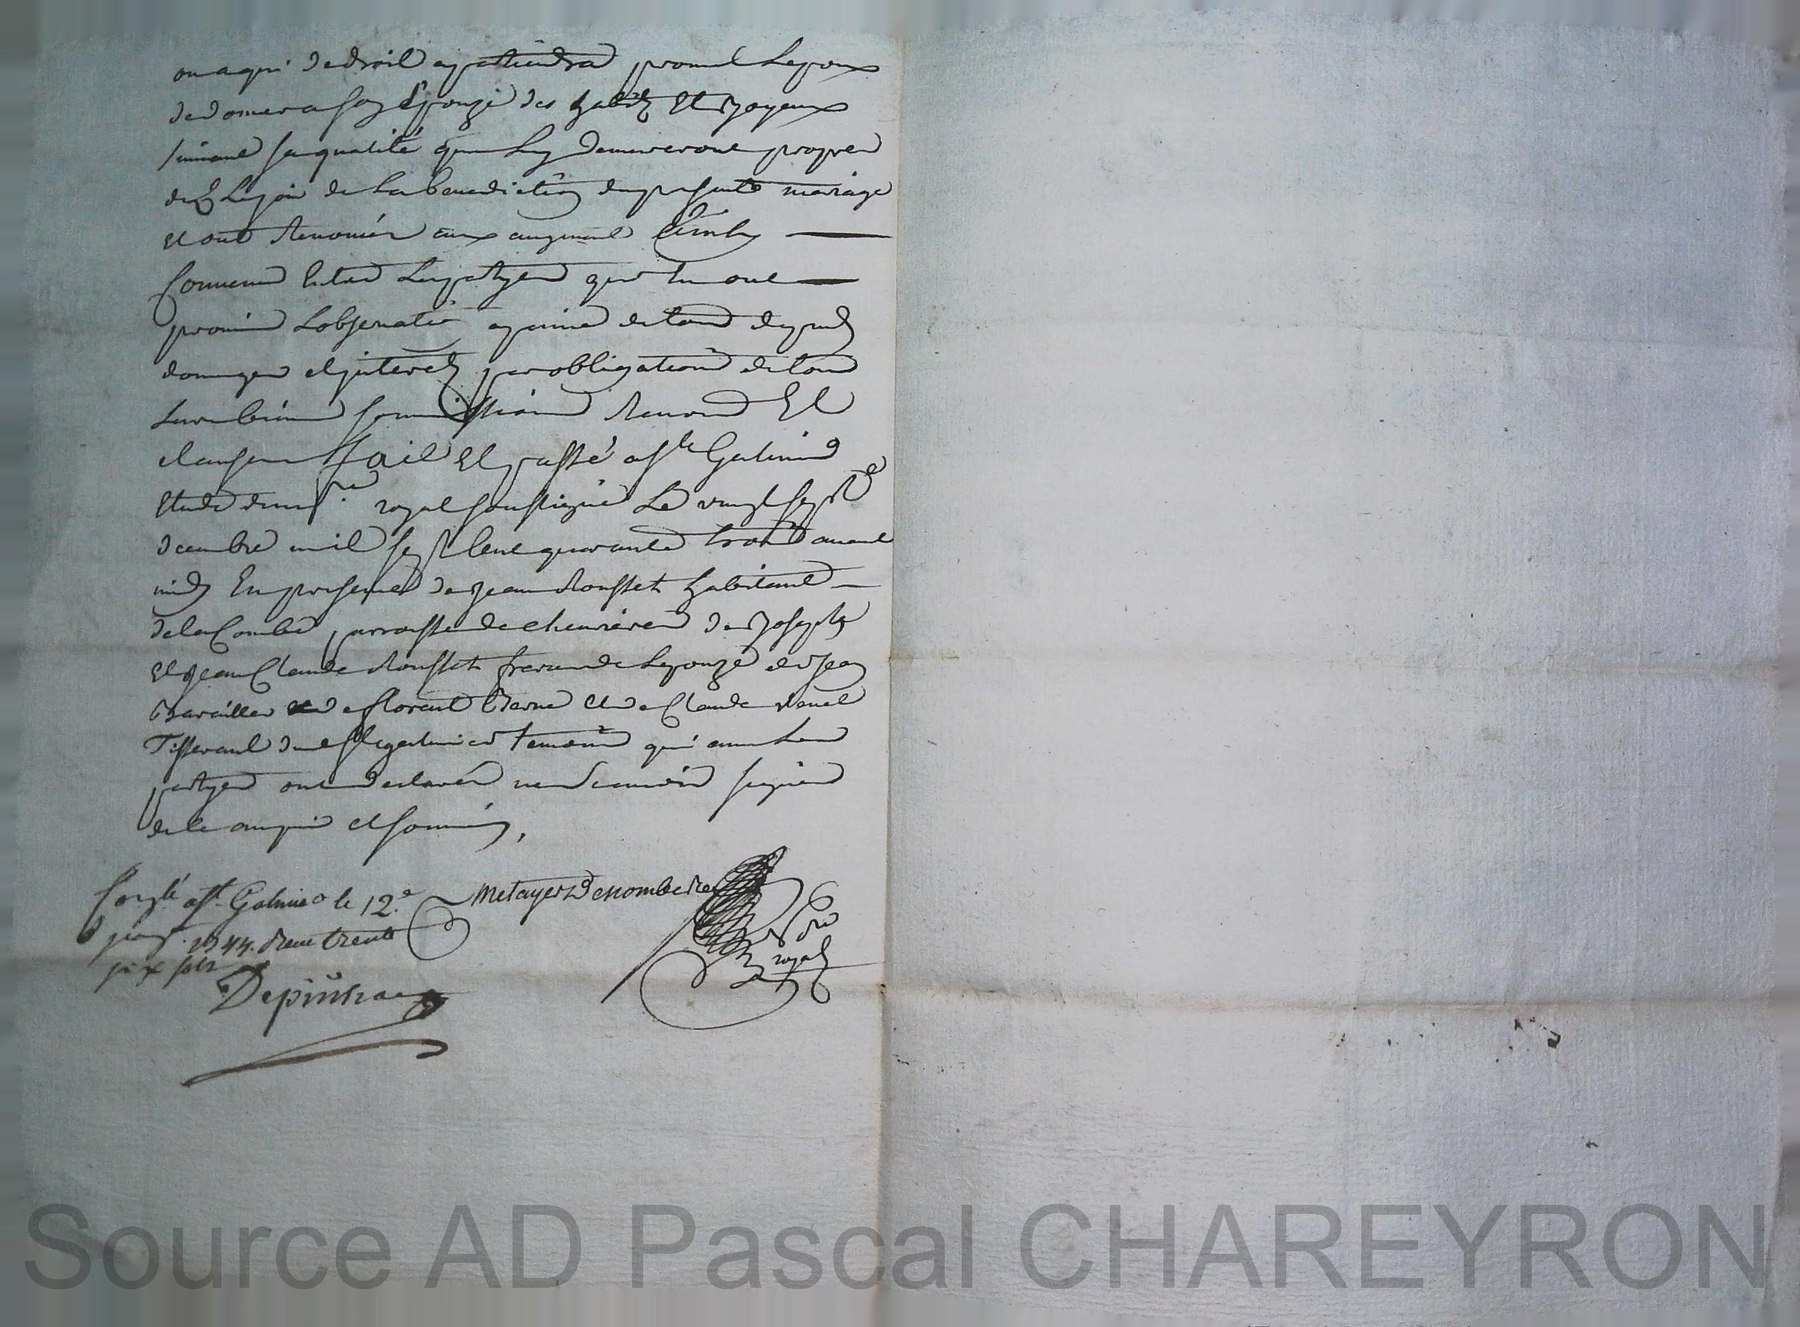 ou a qui de droit apartiendra promet Lepoux
de donner a son Epouze des habits Et Joyaux
suivant sa qualité qui Luy demeureront propres
des Le jour de La benediction du present mariage
et ont Renoncés aux augment Ainsy
Convenu Entre Les partyes qui en ont
promis Lobservation a peine de tous depens
domages et jnterets par obligation de tous
Leurs biens soumissions Renons Et
clauses Fait Et passé a St Galmier
Etude du nre royal soussigné Le vingt sept
decembre mil sept Cent quarante trois avant
midy En presence de Jean Rousset habitant
de la Combe parroisse de chevrieres de Joseph
Et Jean Claude Rousset freres de Lepouze et de Jean
de florent et de Claude
Tisserand dud St galmier temoins qui avec Les
partyes ont declarés ne scavoir signer
de ce enquis et sommés,
Conlé a St Galmier le 12e
janr 1744. Receu trente
six sols
Metayer Denombre
nre
royal